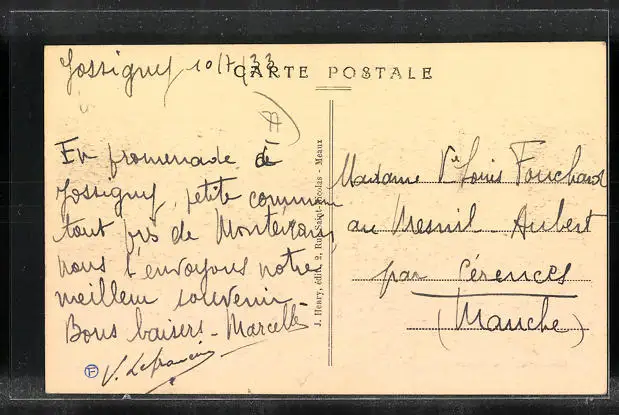 Jossigny 10/7/33
CARTE POSTALE
En promenade à
Jossigny, petite commune
tout près de Montévrain,
nous t'envoyons notre
meilleur souvenir
Bons baisers - Marcelle
V. Lefrancis
F
J. Henry, édit., 2, Rue Saint-Nicolas - Meaux
Madame Vve Louis Fouchard
au Mesnil-Aubert
par Cérences
(Manche)